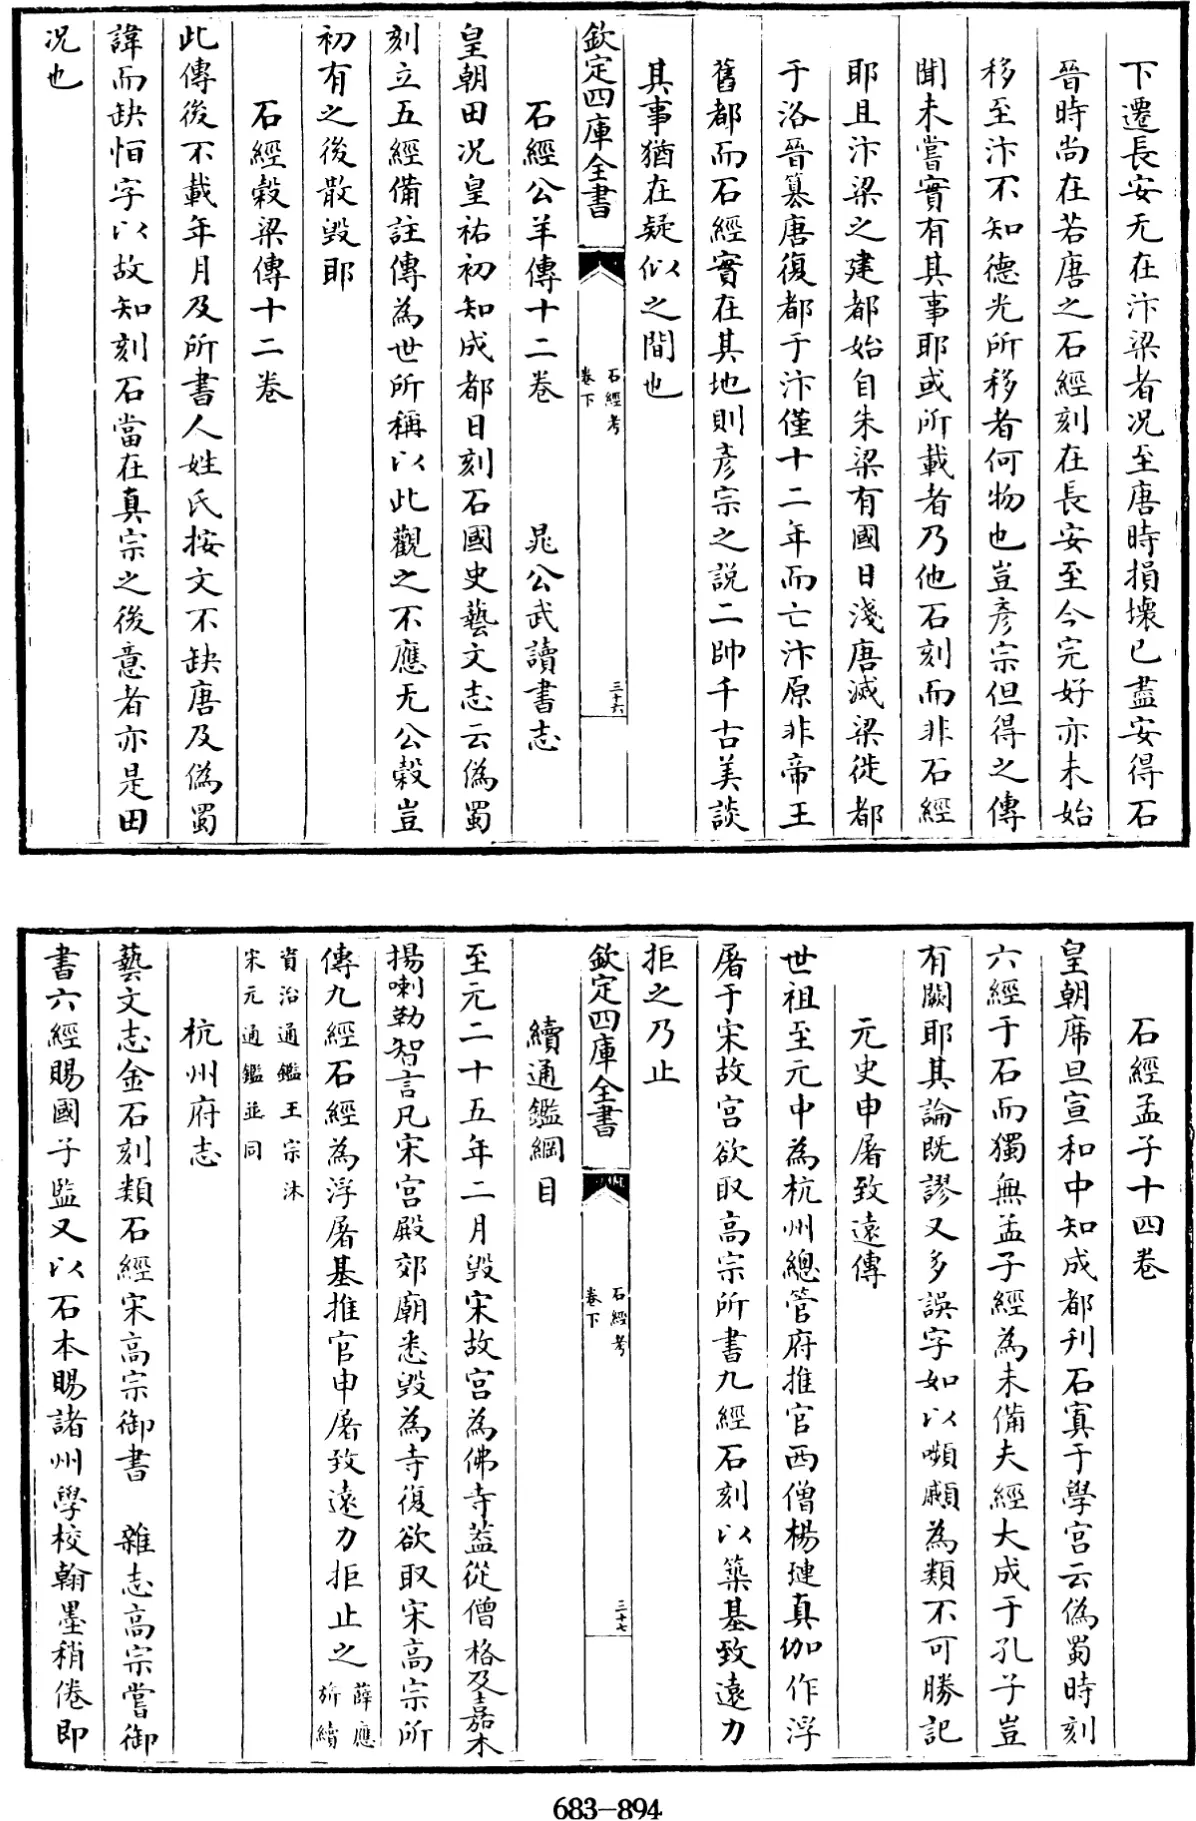 下遷長安无在汴梁者况至唐時損壞已盡安得石
晉時尚在若唐之石經刻在長安至今完好亦未始
移至汴不知德光所移者何物也豈彥宗但得之傳
聞未嘗實有其事耶或所載者乃他石刻而非石經
耶且汴梁之建都始自朱梁有國日淺唐滅梁徙都
于洛晉篡唐復都于汴僅十二年而亡汴原非帝王
舊都而石經實在其地則彥宗之説二帥千古美談
其事猶在疑似之間也
欽定四庫全書
石經考
卷下
三十六
石經公羊傳十二卷 晁公武讀書志
皇朝田况皇祐初知成都日刻石國史藝文志云偽蜀
刻立五經備註傳為世所稱以此觀之不應无公穀豈
初有之後散毁耶
石經穀梁傳十二卷
此傳後不載年月及所書人姓氏按文不缺唐及偽蜀
諱而缺恒字以故知刻石當在真宗之後意者亦是田
况也
石經孟子十四卷
皇朝席旦宣和中知成都刋石寘于學宫云偽蜀時刻
六經于石而獨無孟子經為未備夫經大成于孔子豈
有闕耶其論既謬又多誤字如以嚬顣為類不可勝記
元史申屠致遠傳
世祖至元中為杭州總管府推官西僧楊璉真伽作浮
屠于宋故宫欲取高宗所書九經石刻以築基致遠力
拒之乃止
欽定四庫全書
石經考
卷下
三十七
續通鑑綱目
至元二十五年二月毁宋故宫為佛寺葢從僧格及嘉木
揚喇勒智言凡宋宫殿郊廟悉毁為寺復欲取宋高宗所
傳九經石經為浮屠基推官申屠致遠力拒止之 薛應
旂續
資治通鑑王宗沐
宋元通鑑並同
杭州府志
藝文志金石刻類石經宋高宗御書 雜志高宗嘗御
書六經賜國子監又以石本賜諸州學校翰墨稍倦即
683-894